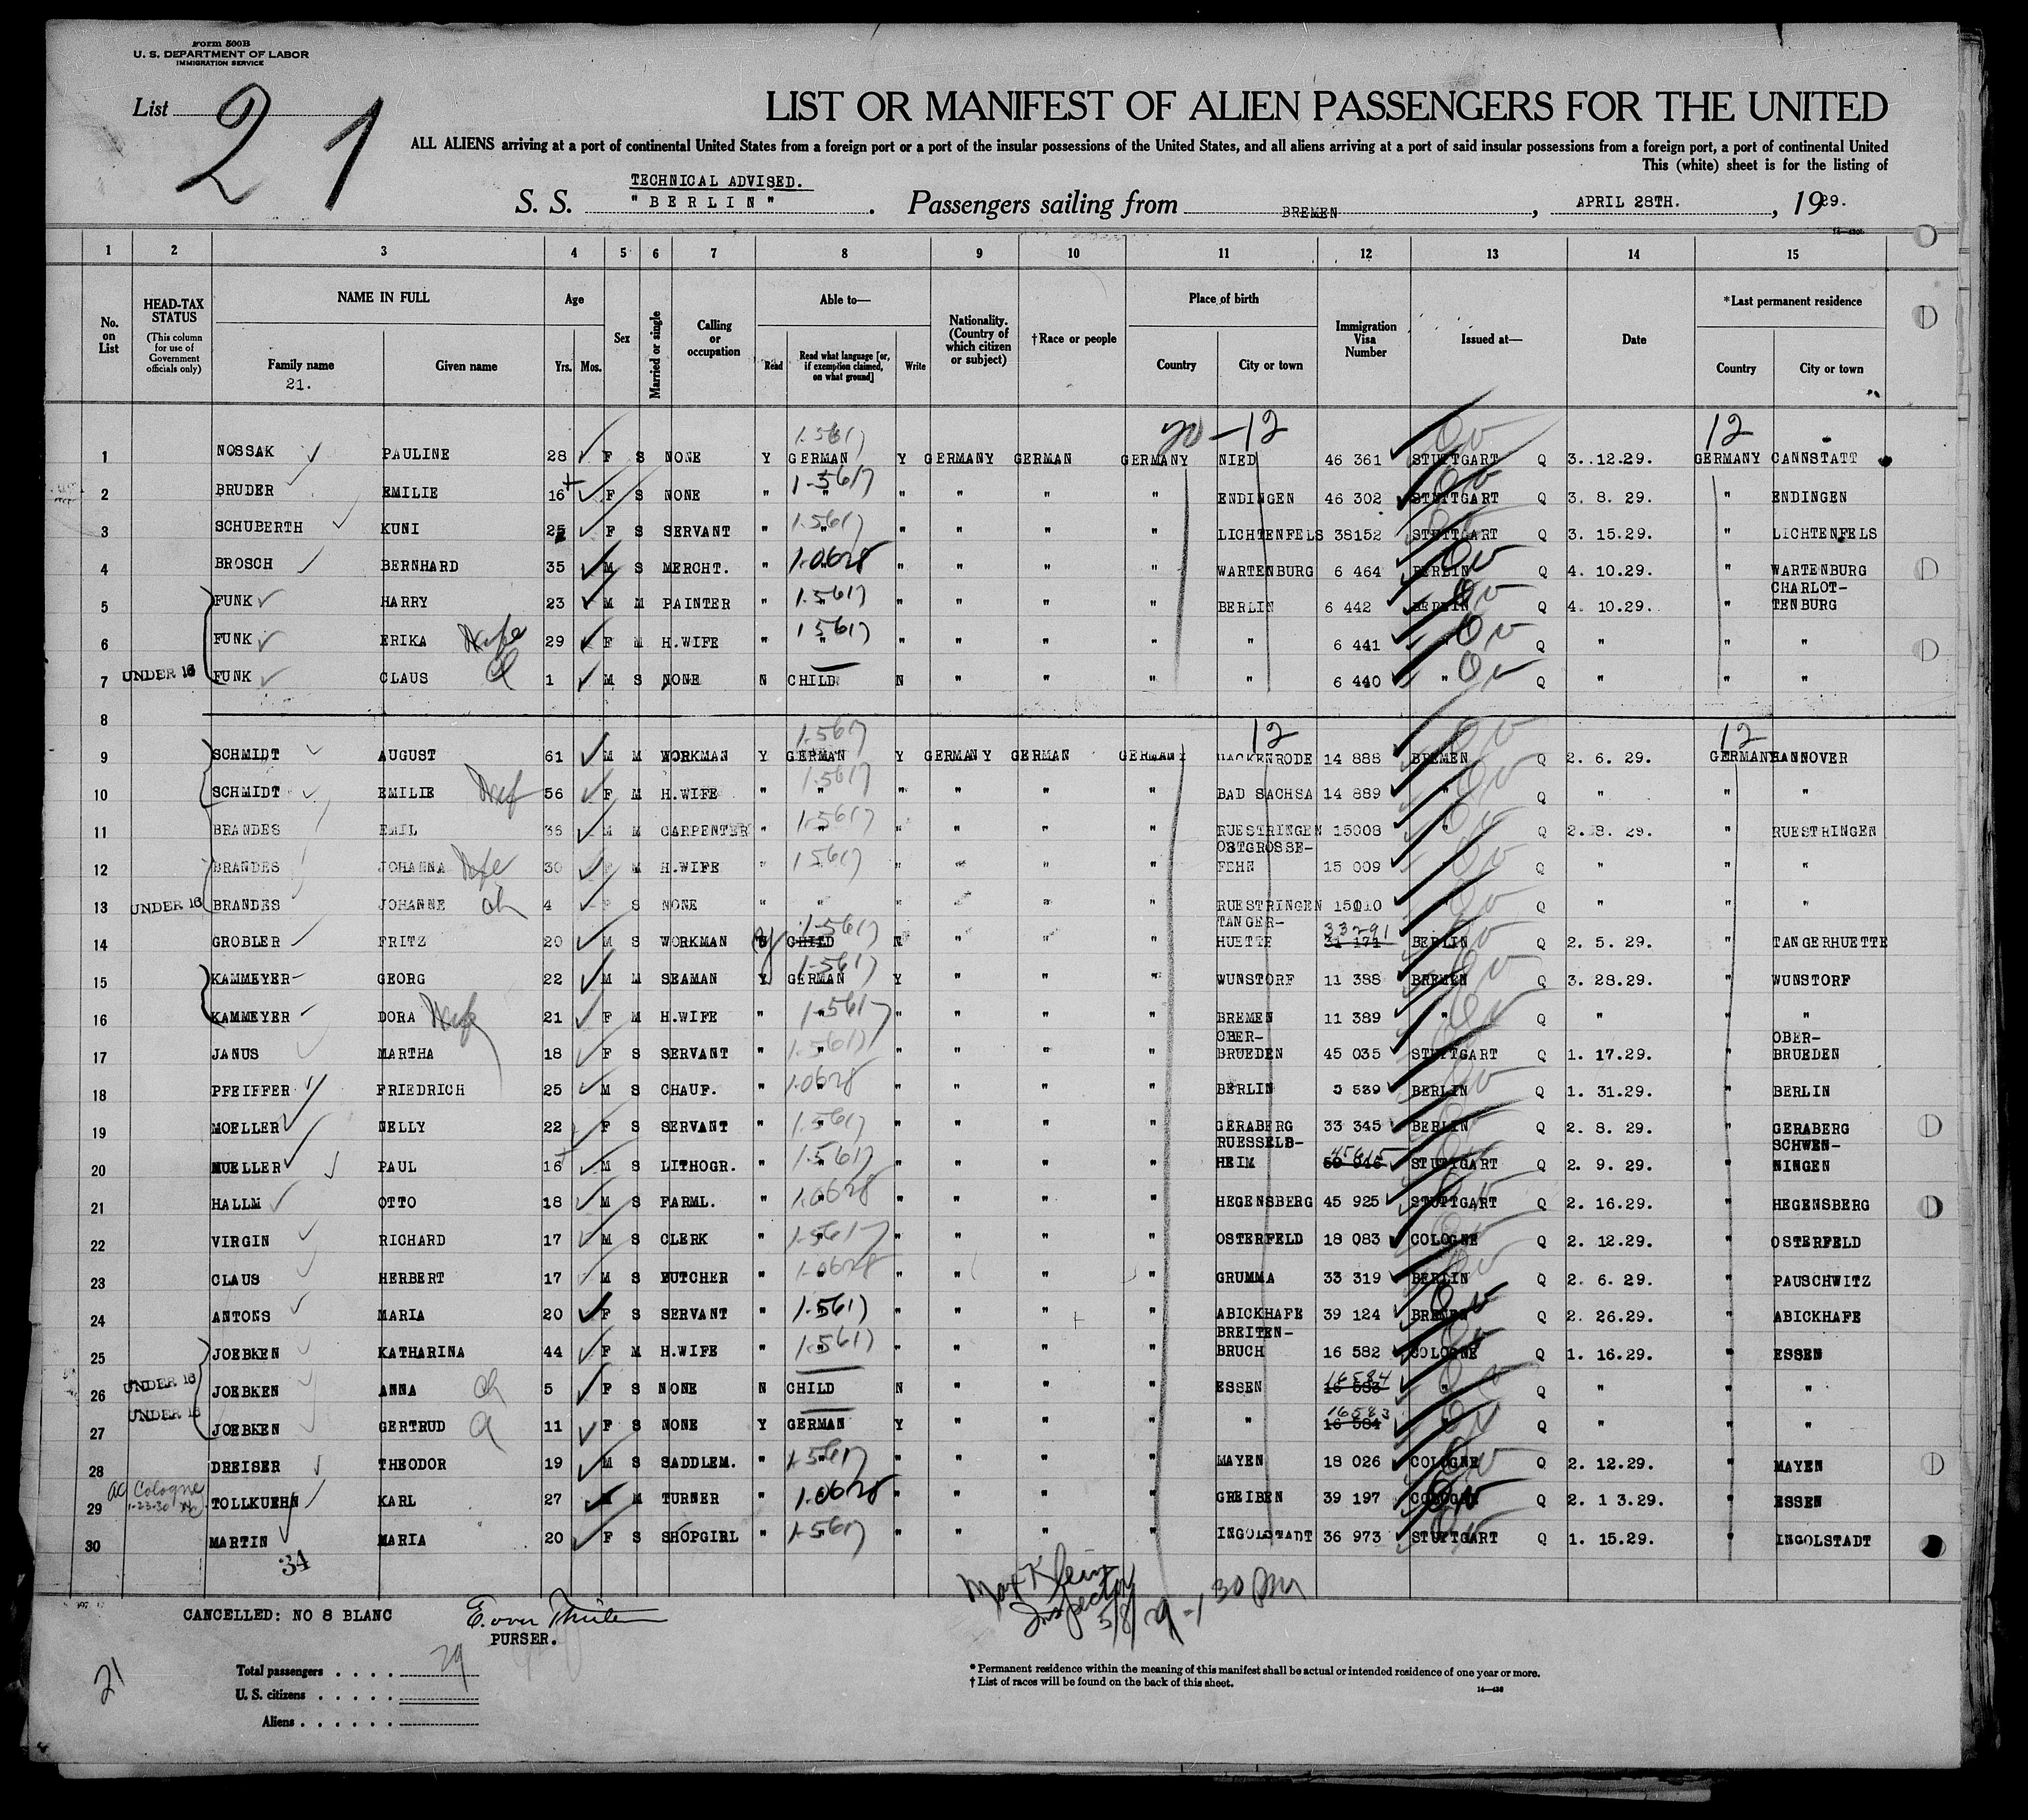 Form 500B
U. S. DEPARTMENT OF LABOR
IMMIGRATION SERVICE
List 21
LIST OR MANIFEST OF ALIEN PASSENGERS FOR THE UNITED
ALL ALIENS arriving at a port of continental United States from a foreign port or a port of the insular possessions of the United States, and all aliens arriving at a port of said insular possessions from a foreign port, a port of continental United
This (white) sheet is for the listing of
TECHNICAL ADVISED.
S. S. "BERLIN". Passengers sailing from BREMEN, APRIL 28TH., 1929.
1 2 3 4 5 6 7 8 9 10 11 12 13 14 15
No. on List
HEAD-TAX STATUS
(This column for use of Government officials only)
NAME IN FULL
Family name
21.
Given name
Age
Yrs. Mos.
Sex
Married or single
Calling or occupation
Able to—
Read
Read what language [or, if exemption claimed, on what ground]
Write
Nationality. (Country of which citizen or subject)
†Race or people
Place of birth
Country
City or town
Immigration Visa Number
Issued at—
Date
*Last permanent residence
Country
City or town
20 - 12 12
1 NOSSAK PAULINE 28 F S NONE Y GERMAN 1-5617 Y GERMANY GERMAN GERMANY NIED 46 361 STUTTGART Q 3. 12.29. GERMANY CANNSTATT
2 BRUDER EMILIE 16 F S NONE " " 1-5617 " " " " ENDINGEN 46 302 STUTTGART Q 3. 8. 29. " ENDINGEN
3 SCHUBERTH KUNI 25 F S SERVANT " " 1-5617 " " " " LICHTENFELS 38152 STUTTGART Q 3. 15.29. " LICHTENFELS
4 BROSCH BERNHARD 35 M S MERCHT. " 1-0628 " " " " WARTENBURG 6 464 BERLIN Q 4. 10.29. " WARTENBURG
5 FUNK HARRY 23 M M PAINTER " " 1-5617 " " " " BERLIN 6 442 BERLIN Q 4. 10.29. " CHARLOT-TENBURG
6 FUNK ERIKA Wife 29 F M H.WIFE " " 1-5617 " " " " " 6 441 " Q " " "
7 UNDER 16 FUNK CLAUS 1 M S NONE N CHILD N " " " " 6 440 " Q " " "
8
12 12
9 SCHMIDT AUGUST 61 M M WORKMAN Y GERMAN 1-5617 Y GERMANY GERMAN GERMANY HACKENRODE 14 888 BREMEN Q 2. 6. 29. GERMANY HANNOVER
10 SCHMIDT EMILIE Wife 56 F M H.WIFE " " 1-5617 " " " " BAD SACHSA 14 889 " Q " " "
11 BRANDES EMIL 36 M M CARPENTER " " 1-5617 " " " " RUESTRINGEN 15008 " Q 2. 8. 29. " RUESTRINGEN
12 BRANDES JOHANNA Wife 30 F M H.WIFE " 1-5617 " " " " OSTGROSSE-FEHN 15 009 " Q " " "
13 UNDER 16 BRANDES JOHANNE ch 4 F S NONE " " " " " " RUESTRINGEN 15010 " Q " " "
14 GROBLER FRITZ 20 M S WORKMAN Y CHILD 1-5617 N " " " TANGER-HUETTE 31 171 33291 BERLIN Q 2. 5. 29. " TANGERHUETTE
15 KAMMEYER GEORG 22 M M SEAMAN Y GERMAN 1-5617 Y " " " WUNSTORF 11 388 BREMEN Q 3. 28.29. " WUNSTORF
16 KAMMEYER DORA Wife 21 F M H.WIFE " " 1-5617 " " " " BREMEN 11 389 " Q " " "
17 JANUS MARTHA 18 F S SERVANT " " 1-5617 " " " " OBER-BRUEDEN 45 035 STUTTGART Q 1. 17.29. " OBER-BRUEDEN
18 PFEIFFER FRIEDRICH 25 M S CHAUF. " " 1-0628 " " " " BERLIN 539 BERLIN Q 1. 31.29. " BERLIN
19 MOELLER NELLY 22 F S SERVANT " " 1-5617 " " " " GERABERG 33 345 BERLIN Q 2. 8. 29. " GERABERG
20 MUELLER PAUL 16 M S LITHOGR. " " 1-5617 " " " " RUESSELS-HEIM STUTTGART Q 2. 9. 29. " SCHWEN-NINGEN
21 HALLM OTTO 18 M S FARML. " " 1-0628 " " " " HEGENSBERG 45 925 STUTTGART Q 2. 16.29. " HEGENSBERG
22 VIRGIN RICHARD 17 M S CLERK " " 1-5617 " " " " OSTERFELD 18 083 COLOGNE Q 2. 12.29. " OSTERFELD
23 CLAUS HERBERT 17 M S BUTCHER " " 1-0628 " " " " GRUMMA 33 319 BERLIN Q 2. 6. 29. " PAUSCHWITZ
24 ANTONS MARIA 20 F S SERVANT " " 1-5617 " " " " ABICKHAFE 39 124 BREMEN Q 2. 26.29. " ABICKHAFE
25 JOEBKEN KATHARINA 44 F M H.WIFE " " 1-5617 " " " " BREITEN-BRUCH 16 582 COLOGNE Q 1. 16.29. " ESSEN
26 UNDER 16 JOEBKEN ANNA ch 5 F S NONE N CHILD N " " " ESSEN 16 583 16584 " Q " " "
27 UNDER 16 JOEBKEN GERTRUD 11 F S NONE Y GERMAN Y " " " " 16 584 16583 " Q " " "
28 DREISER THEODOR 19 M S SADDLEM. " " 1-5617 " " " " MAYEN 18 026 COLOGNE Q 2. 12.29. " MAYEN
29 Cologne 1-23-30 TOLLKUEHN KARL 27 M M TURNER " " 1-0628 " " " " GREIBEN 39 197 COLOGNE Q 2. 1 3.29. " ESSEN
30 MARTIN MARIA 20 F S SHOPGIRL " " 1-5617 " " " " INGOLSTADT 36 973 STUTTGART Q 1. 15.29. " INGOLSTADT
34
Max Klein
Inspector
5/8/29 - 1 30 PM
CANCELLED: NO 8 BLANC
PURSER.
21
Total passengers . . . . 29
U. S. citizens . . . . .
Aliens . . . . . .
* Permanent residence within the meaning of this manifest shall be actual or intended residence of one year or more.
† List of races will be found on the back of this sheet.